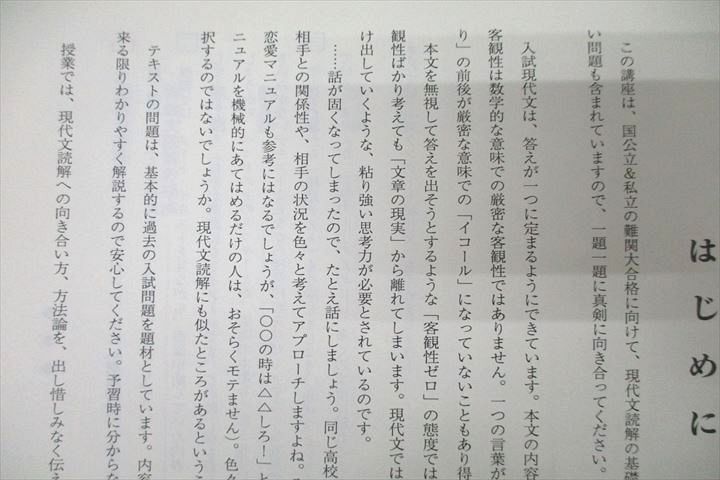 はじめに
この講座は、国公立&私立の難関大合格に向けて、現代文読解の基礎
い問題も含まれていますので、一題一題に真剣に向き合ってください。
入試現代文は、答えが一つに定まるようにできています。本文の内容
客観性は数学的な意味での厳密な客観性ではありません。一つの言葉が
り」の前後が厳密な意味での「イコール」になっていないこともあり得
本文を無視して答えを出そうとするような「客観性ゼロ」の態度では
観性ばかり考えても「文章の現実」から離れてしまいます。現代文では
け出していくような、粘り強い思考力が必要とされているのです。
……話が固くなってしまったので、たとえ話にしましょう。同じ高校
相手との関係性や、相手の状況を色々と考えてアプローチしますよね。
恋愛マニュアルも参考にはなるでしょうが、「〇〇の時は△△しろ!」と
ニュアルを機械的にあてはめるだけの人は、おそらくモテません)。色々
択するのではないでしょうか。現代文読解にも似たところがあるというこ
テキストの問題は、基本的に過去の入試問題を題材としています。内容
来る限りわかりやすく解説するので安心してください。予習時に分からな
授業では、現代文読解への向き合い方、方法論を、出し惜しみなく伝え